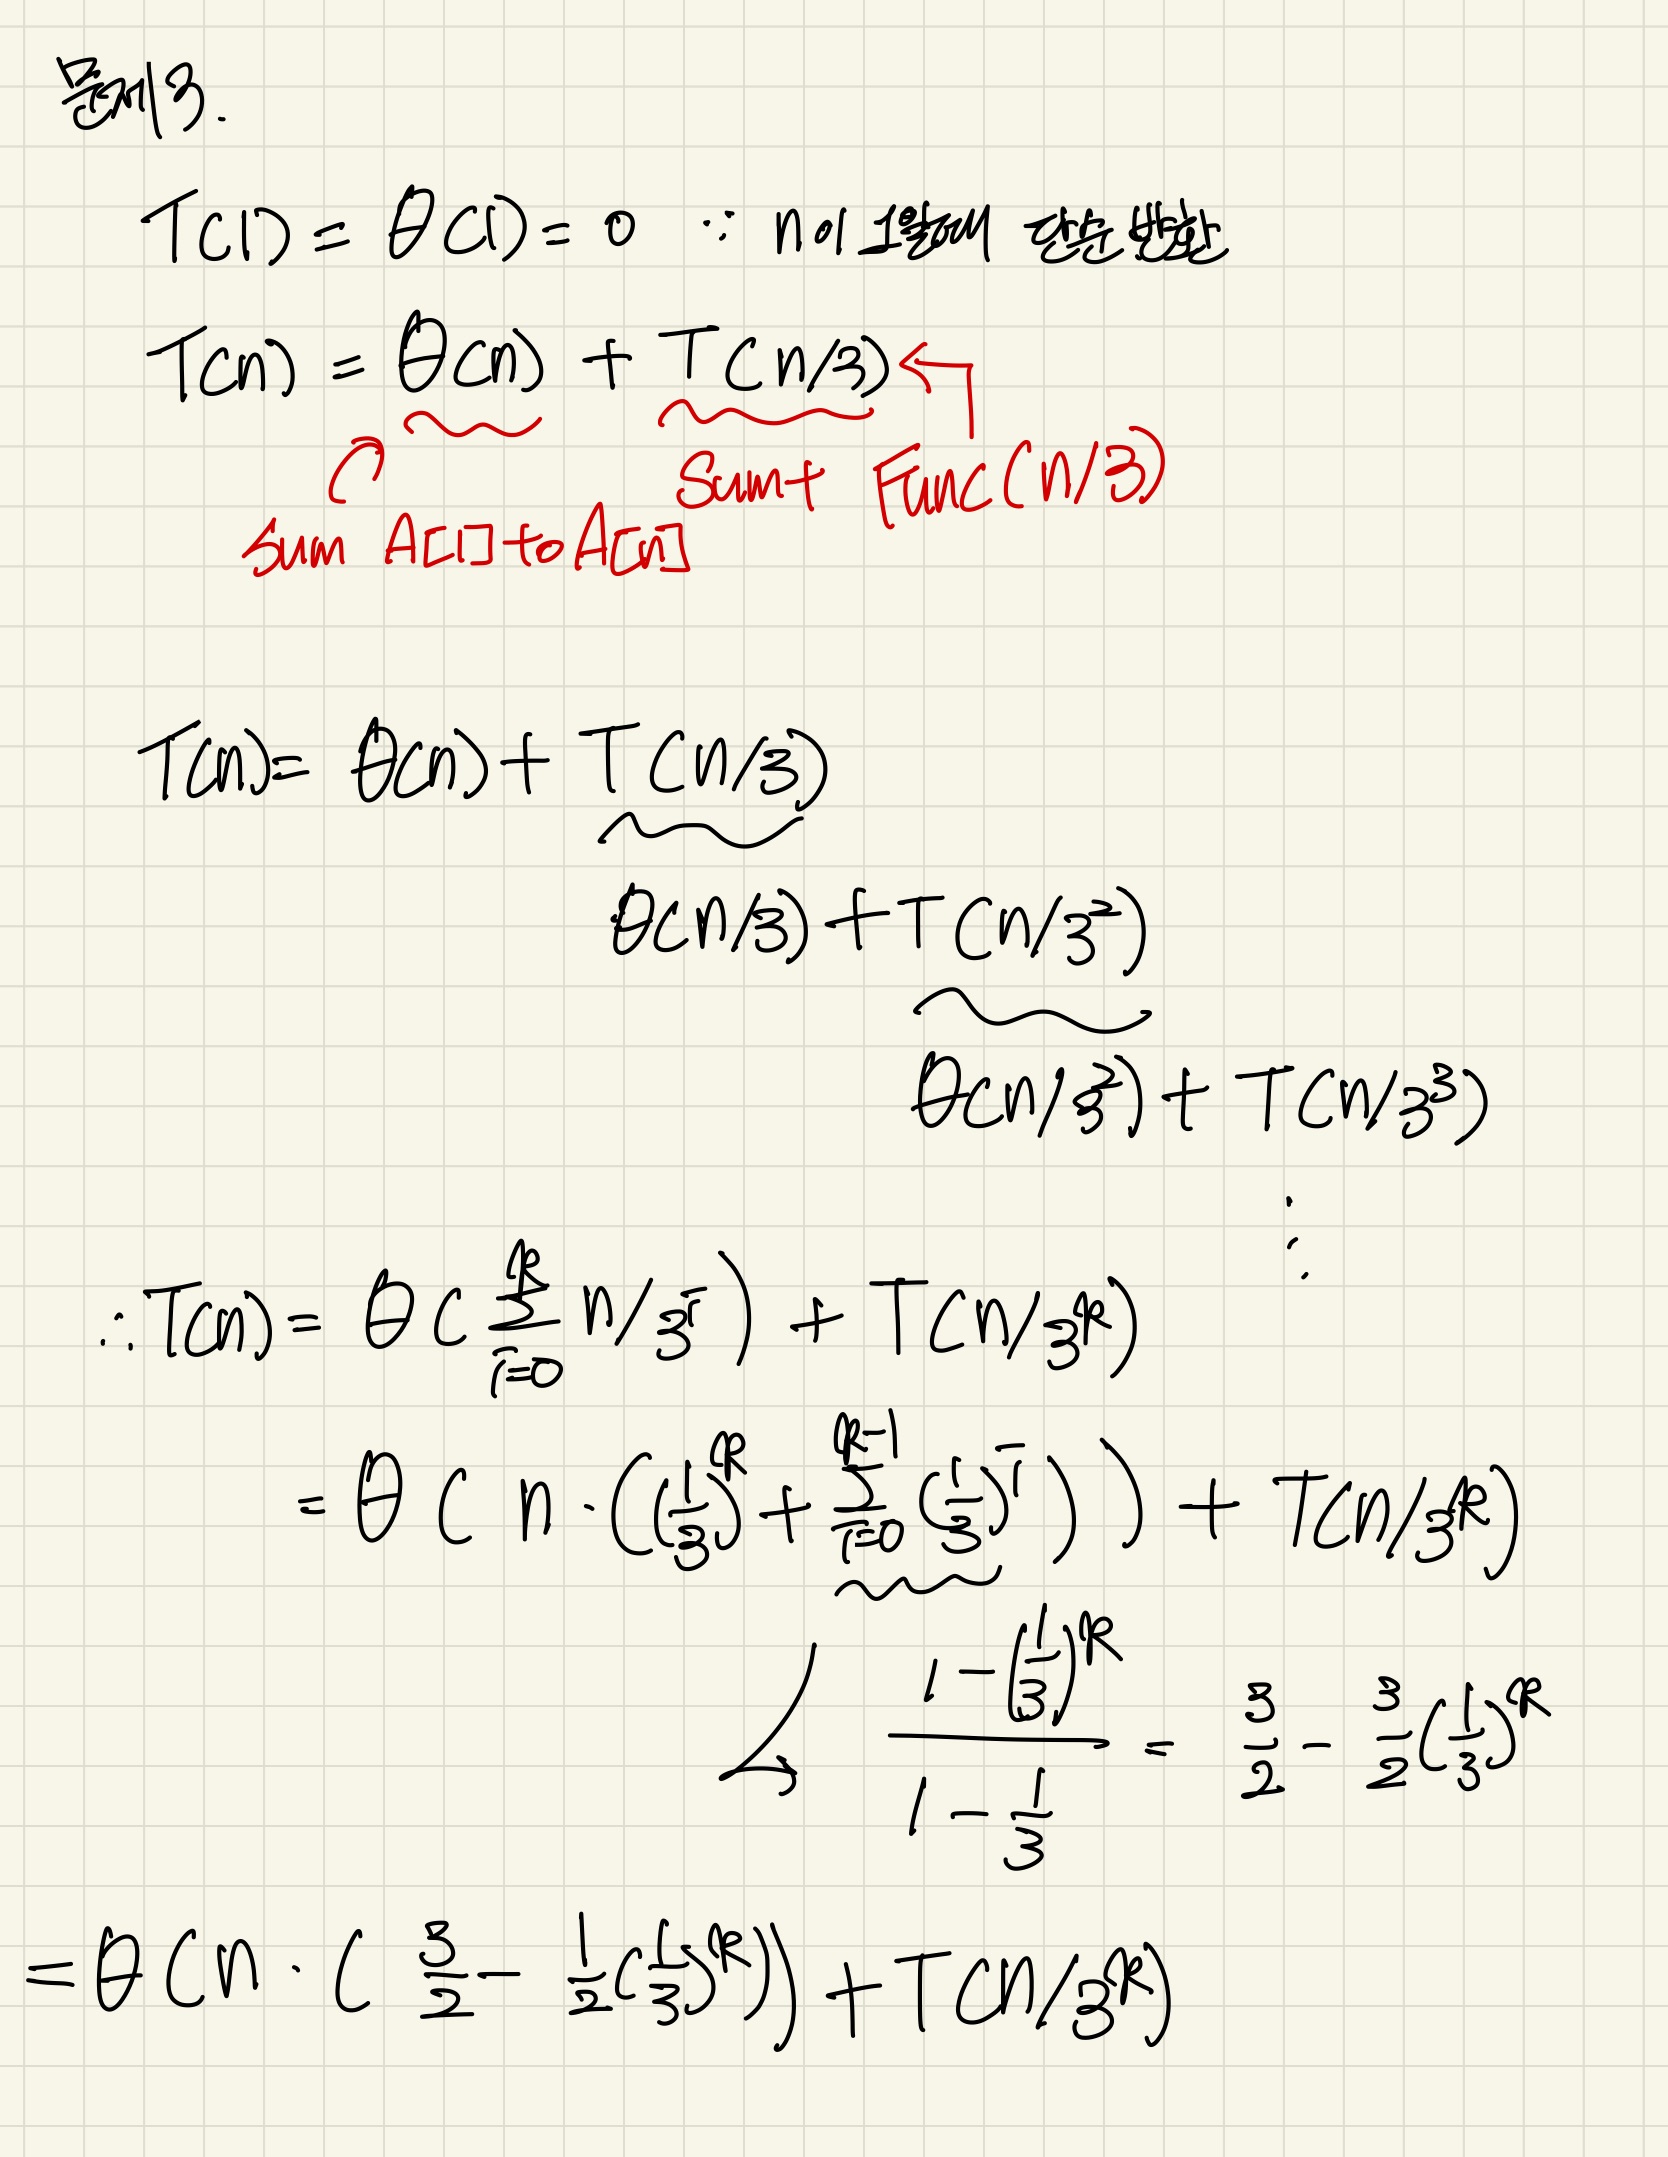 문제3.
T(1) = θ(1) = 0 ∵ n이 1일때 단순 반환
T(n) = θ(n) + T(n/3)
Sum + Func(n/3)
Sum A[1] to A[n]
T(n) = θ(n) + T(n/3)
θ(n/3) + T(n/3²)
θ(n/3²) + T(n/3³)
⋮
∴ T(n) = θ( Σ_{i=0}^{k} n/3^i ) + T(n/3^k)
= θ( n · ((1/3)^k + Σ_{i=0}^{k-1} (1/3)^i ) ) + T(n/3^k)
(1 - (1/3)^k) / (1 - 1/3) = 3/2 - 3/2 (1/3)^k
= θ( n · ( 3/2 - 1/2 (1/3)^k ) ) + T(n/3^k)